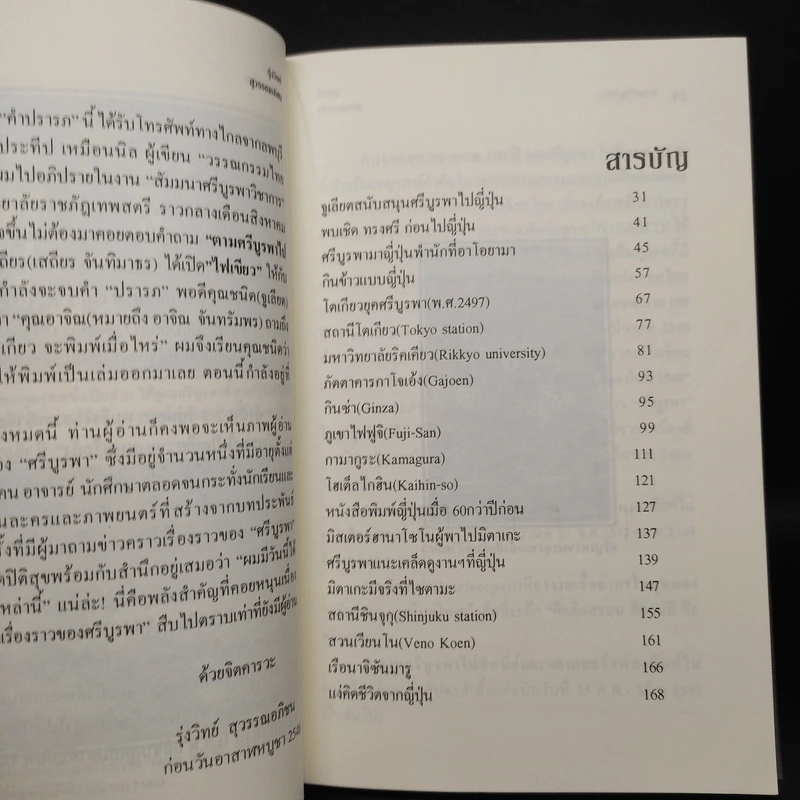 "คำปรารภ" นี้ ได้รับโทรศัพท์ทางไกลจากลพบุรี
ประทีป เหมือนนิล ผู้เขียน "วรรณกรรมไทย
มไปอภิปรายในงาน "สัมมนาศรีบูรพาวิชาการ"
ยาลัยราชภัฏเทพสตรี ราวกลางเดือนสิงหาคม
ขึ้นไม่ต้องมาคอยตอบคำถาม "ตามศรีบูรพาไป
ถียร(เสถียร จันทิมาธร) ได้เปิด"ไฟเขียว" ให้กับ
กำลังจะจบคำ "ปรารภ" พอดีคุณชนิด(จูเลียต)
า "คุณอาจิณ(หมายถึง อาจิณ จันทรัมพร) ถามถึง
เกียว จะพิมพ์เมื่อไหร่" ผมจึงเรียนคุณชนิดว่า
ให้พิมพ์เป็นเล่มออกมาเลย ตอนนี้กำลังอยู่ที่
งหมดนี้ ท่านผู้อ่านก็คงพอจะเห็นภาพผู้อ่าน
อง "ศรีบูรพา" ซึ่งมีอยู่จำนวนหนึ่งที่มีอายุตั้งแต่
คน อาจารย์ นักศึกษาตลอดจนกระทั่งนักเรียนและ
นละครและภาพยนตร์ที่ สร้างจากบทประพันธ์
ั้งที่มีผู้มาถามข่าวคราวเรื่องราวของ "ศรีบูรพา"
ปิติสุขพร้อมกับสำนึกอยู่เสมอว่า "ผมมีวันนี้ได้
หล่านี้" แน่ล่ะ! นี่คือพลังสำคัญที่คอยหนุนเนื่อง
เรื่องราวของศรีบูรพา" สืบไปตราบเท่าที่ยังมีผู้อ่าน
ด้วยจิตคารวะ
รุ่งวิทย์ สุวรรณอภิชน
ก่อนวันอาสาฬหบูชา
สารบัญ
จูเลียตสนับสนุนศรีบูรพาไปญี่ปุ่น 31
พบเชิด ทรงศรี ก่อนไปญี่ปุ่น 41
ศรีบูรพามาญี่ปุ่นพำนักที่อาโอยามา 45
กินข้าวแบบญี่ปุ่น 57
โตเกียวยุคศรีบูรพา(พ.ศ.2497) 67
สถานีโตเกียว(Tokyo station) 77
มหาวิทยาลัยริคเคียว(Rikkyo university) 81
ภัตตาคารกาโจเอ้ง(Gajoen) 93
กินซ่า(Ginza) 95
ภูเขาไฟฟูจิ(Fuji-San) 99
กามากูระ(Kamagura) 111
โฮเต็ลไกฮิน(Kaihin-so) 121
หนังสือพิมพ์ญี่ปุ่นเมื่อ 60กว่าปีก่อน 127
มิสเตอร์ฮานาโซโนผู้พาไปมิตาเกะ 137
ศรีบูรพาแนะเคล็ดดูงานฯที่ญี่ปุ่น 139
มิตาเกะมีจริงที่ไซตามะ 147
สถานีชินจูกุ(Shinjuku station) 155
สวนเวียนโน(Veno Koen) 161
เรือนาจิซันมารู 166
แง่คิดชีวิตจากญี่ปุ่น 168